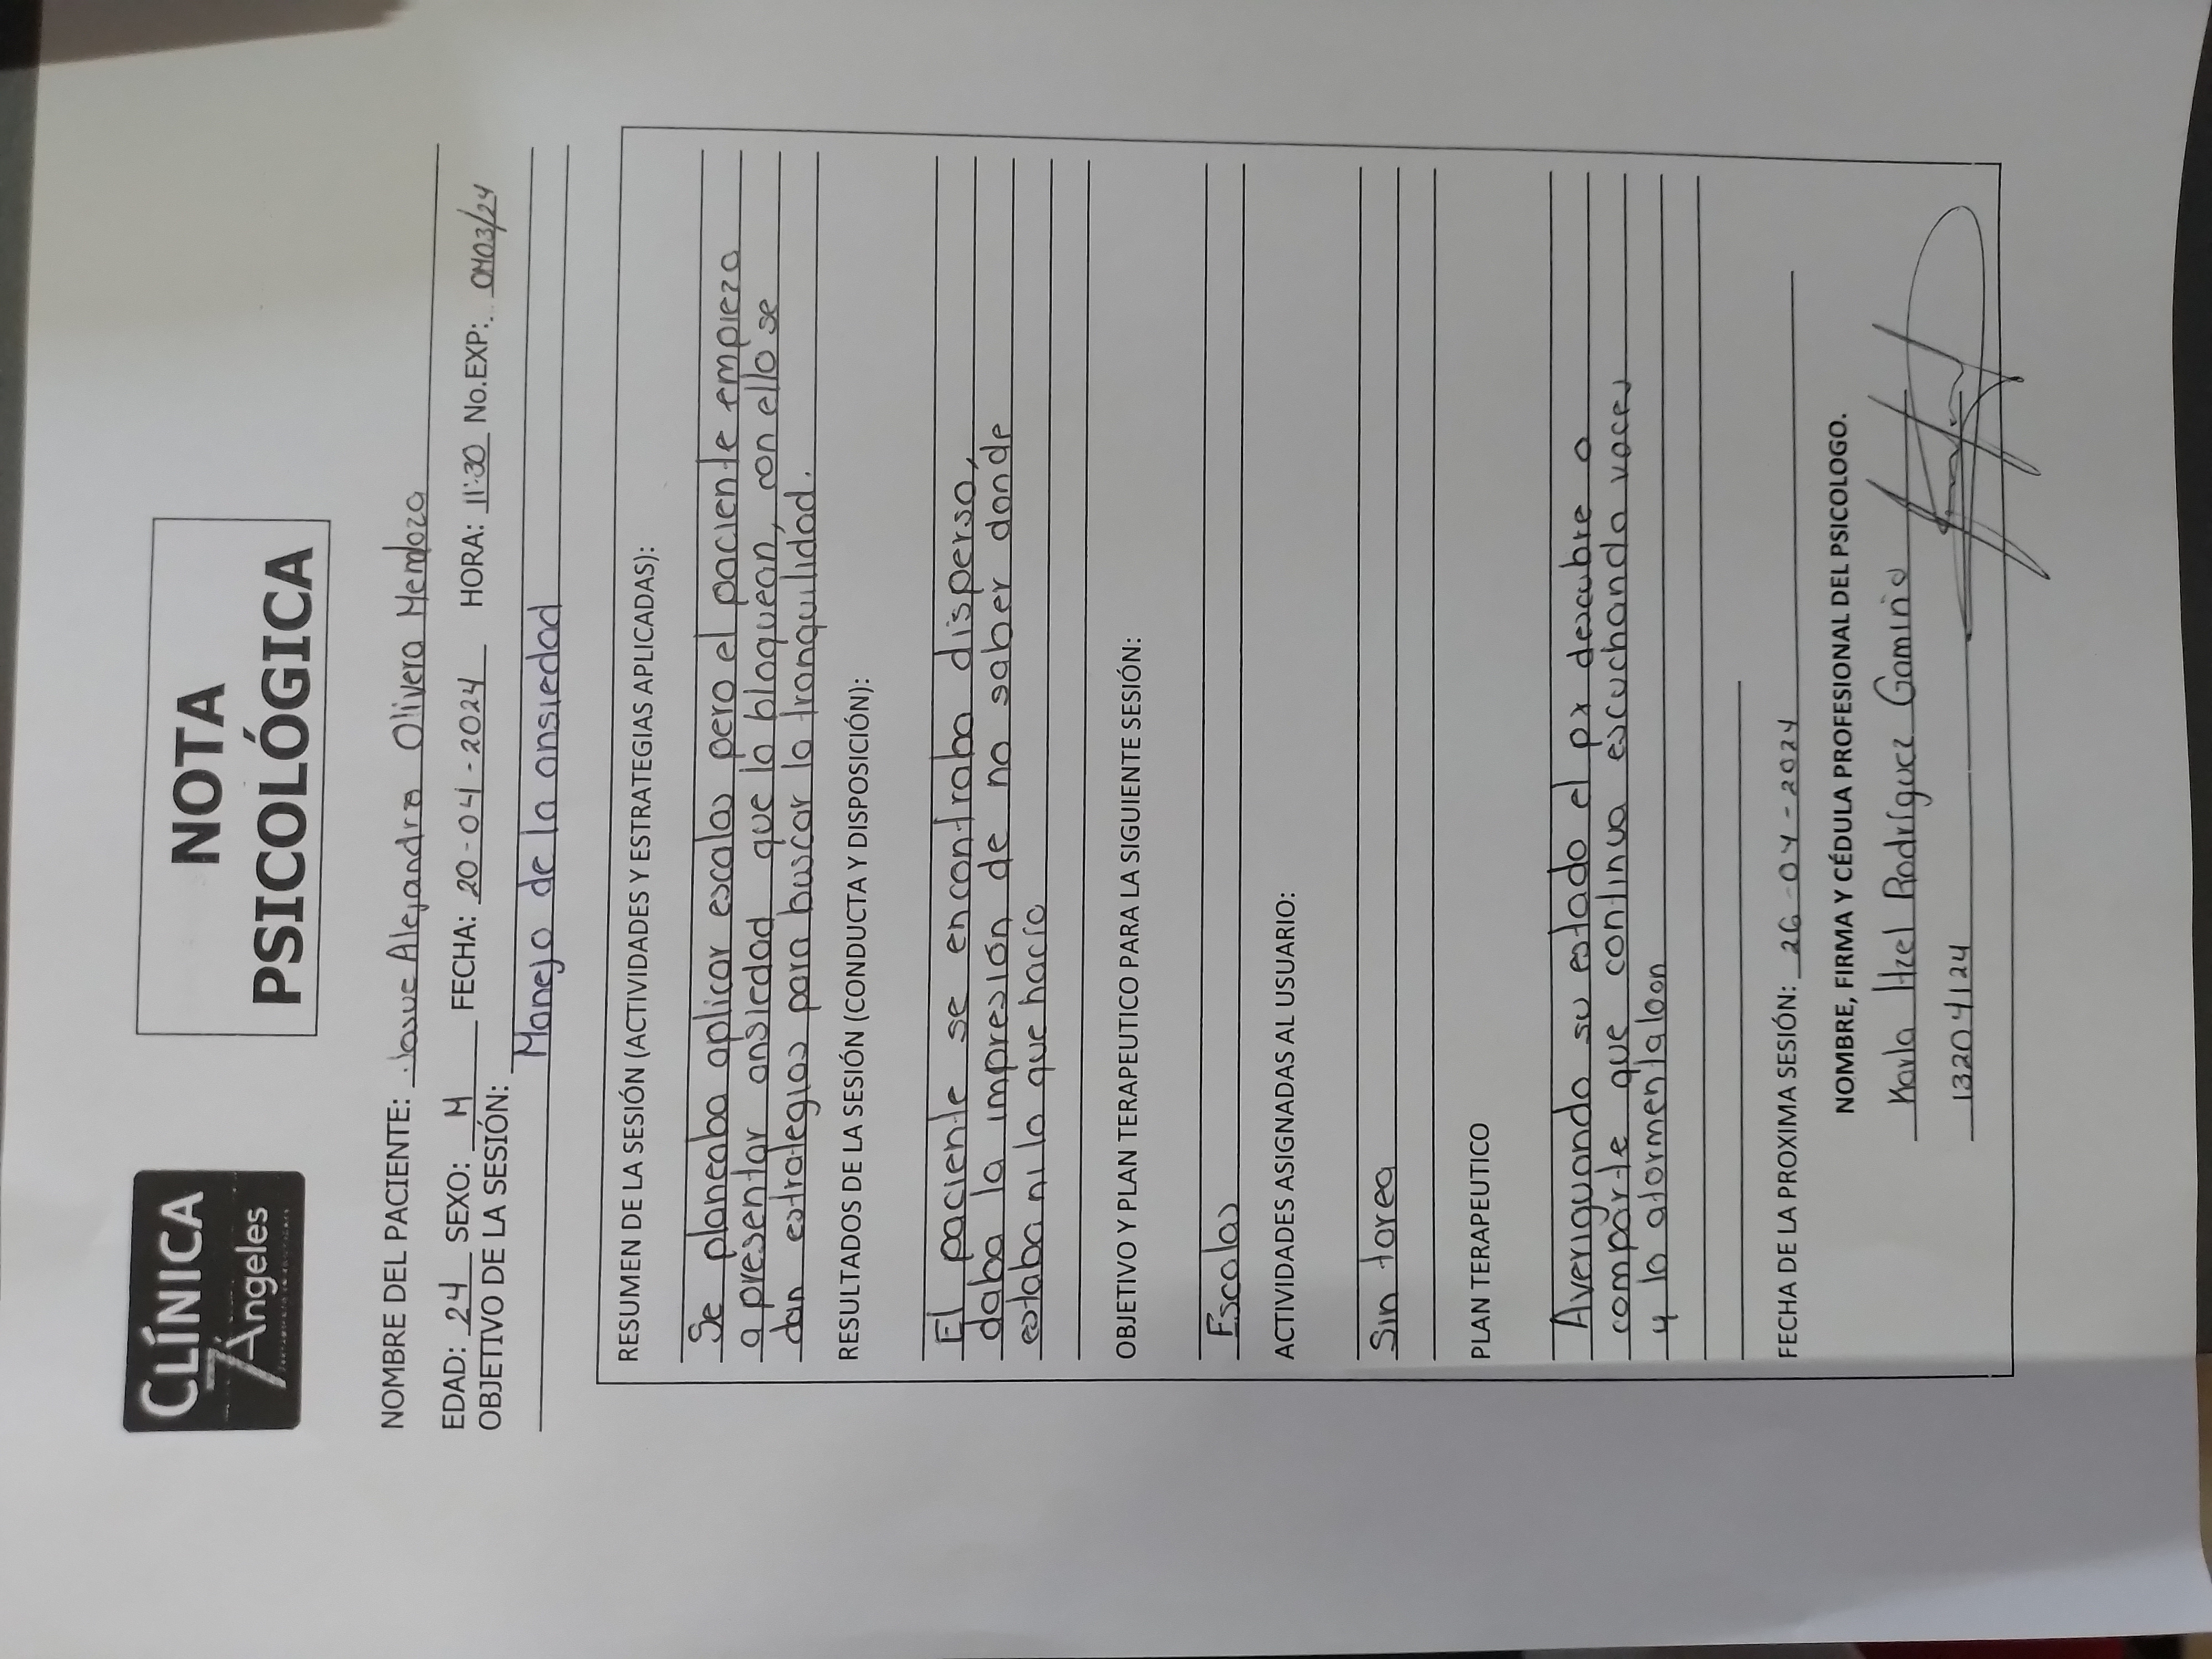 CLÍNICA
7 Ángeles
NOTA
PSICOLÓGICA
NOMBRE DEL PACIENTE: Josue Alejandro Olivera Mendoza
EDAD: 24 SEXO: M FECHA: 20-04-2024 HORA: 11:30 No.EXP: OM03/24
OBJETIVO DE LA SESIÓN:
Manejo de la ansiedad
RESUMEN DE LA SESIÓN (ACTIVIDADES Y ESTRATEGIAS APLICADAS):
Se planeaba aplicar escalas pero el paciente empieza
a presentar ansiedad que lo bloquean, con ello se
dan estrategias para buscar la tranquilidad.
RESULTADOS DE LA SESIÓN (CONDUCTA Y DISPOSICIÓN):
El paciente se encontraba disperso,
daba la impresión de no saber donde
estaba ni lo que hacía
OBJETIVO Y PLAN TERAPEUTICO PARA LA SIGUIENTE SESIÓN:
Escalas
ACTIVIDADES ASIGNADAS AL USUARIO:
Sin tarea
PLAN TERAPEUTICO
Averiguando su estado el px descubre o
comparte que continua escuchando voces
y lo
FECHA DE LA PROXIMA SESIÓN: 26-04-2024
NOMBRE, FIRMA Y CÉDULA PROFESIONAL DEL PSICOLOGO.
Karla Itzel Rodríguez Gamiño
13204124